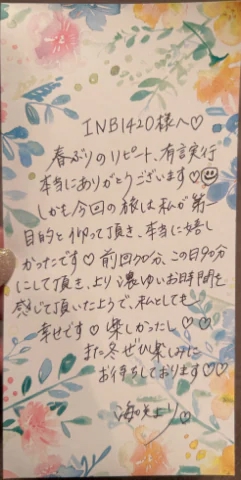 INB1420様へ♡
春ぶりのリピート、有言実行
本当にありがとうございます♡☺
しかも今回の旅は私が第一
目的と仰って頂き、本当に嬉し
かったです♡ 前回70分、この日90分
にして頂き、より濃ゆいお時間を
感じて頂いたようで、私としても
幸せです♡ 楽しかったし♡♡
また冬ぜひ楽しみに
お待ちしております♡♡
海咲より♡